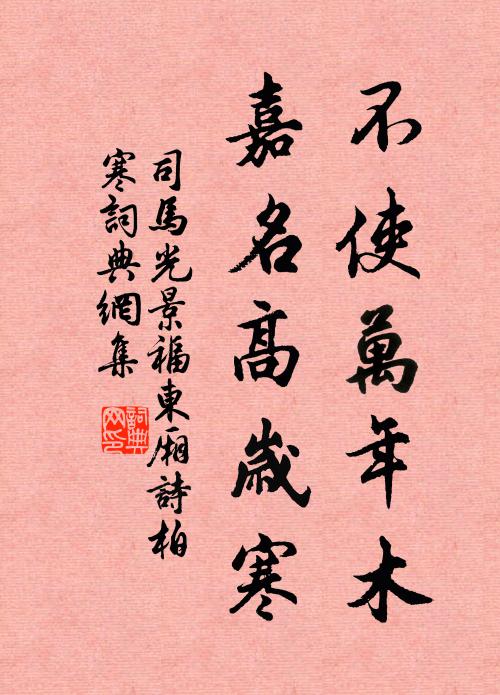 不使萬年木
嘉名高歲寒
司馬光景福東廂詩柏
寒詞典網集
詞典
网印